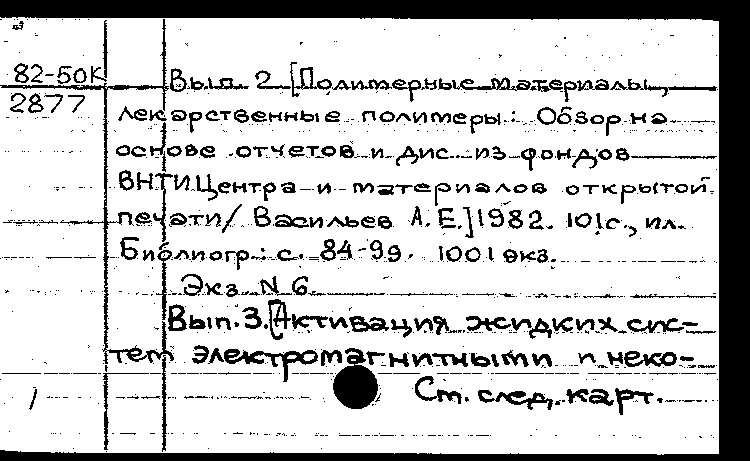 82-50К Вып. 2 [Полимерные материалы,
2877 лекарственные полимеры: Обзор на
основе отчетов и дис. из фондов
ВНТИЦентра и материалов открытой
печати/ Васильев А.Е.] 1982. 101с., ил.
Библиогр.: с. 84-99. 1001 экз.
Экз. N 6.
Вып. 3. [Активация жидких сис-
тем электромагнитными и неко-
1 См. след. карт.